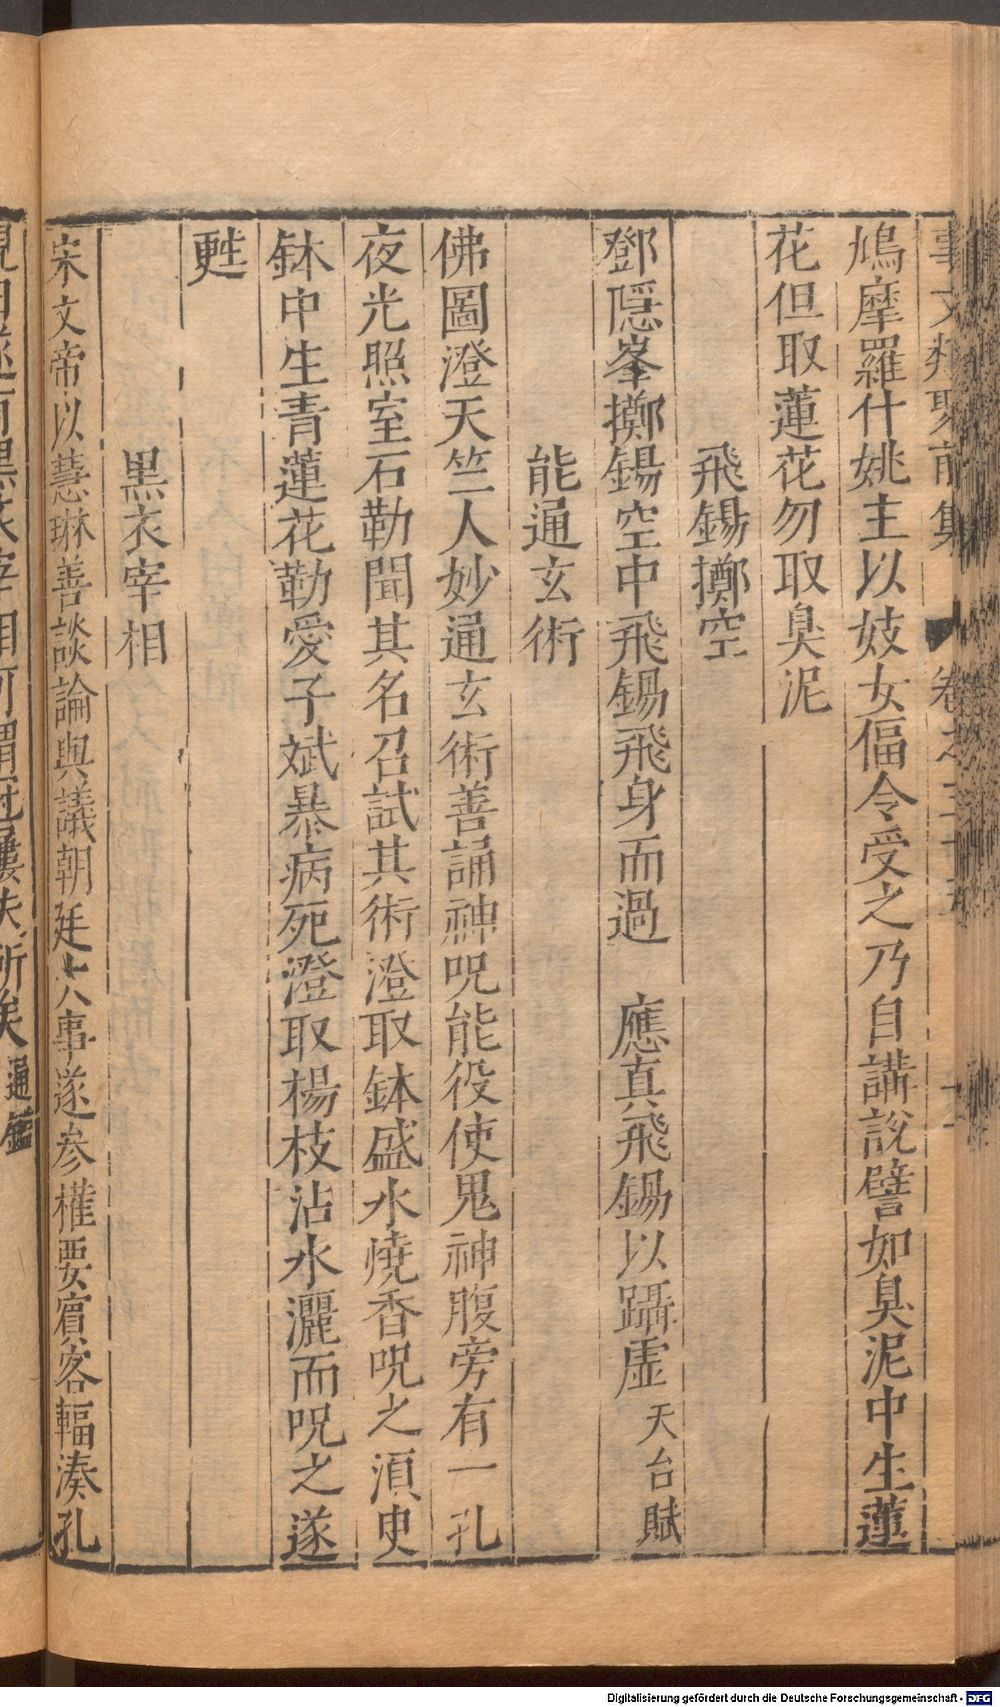 事文類聚前集 卷之三十五
鳩摩羅什姚主以妓女偪令受之乃自講說譬如臭泥中生蓮
花但取蓮花勿取臭泥
飛錫擲空
鄧隱峯擲錫空中飛錫飛身而過 應真飛錫以躡虛 天台賦
能通玄術
佛圖澄天竺人妙通玄術善誦神呪能役使鬼神腹旁有一孔
夜光照室石勒聞其名召試其術澄取鉢盛水燒香呪之湏臾
鉢中生青蓮花勒愛子斌暴病死澄取楊枝沾水灑而呪之遂
甦
黑衣宰相
宋文帝以慧琳善談論與議朝廷大事遂参權要賓客輻湊孔
覬曰遂有黑衣宰相可謂冠屨失所矣 通鑑
Digitalisierung gefördert durch die Deutsche Forschungsgemeinschaft - DFG